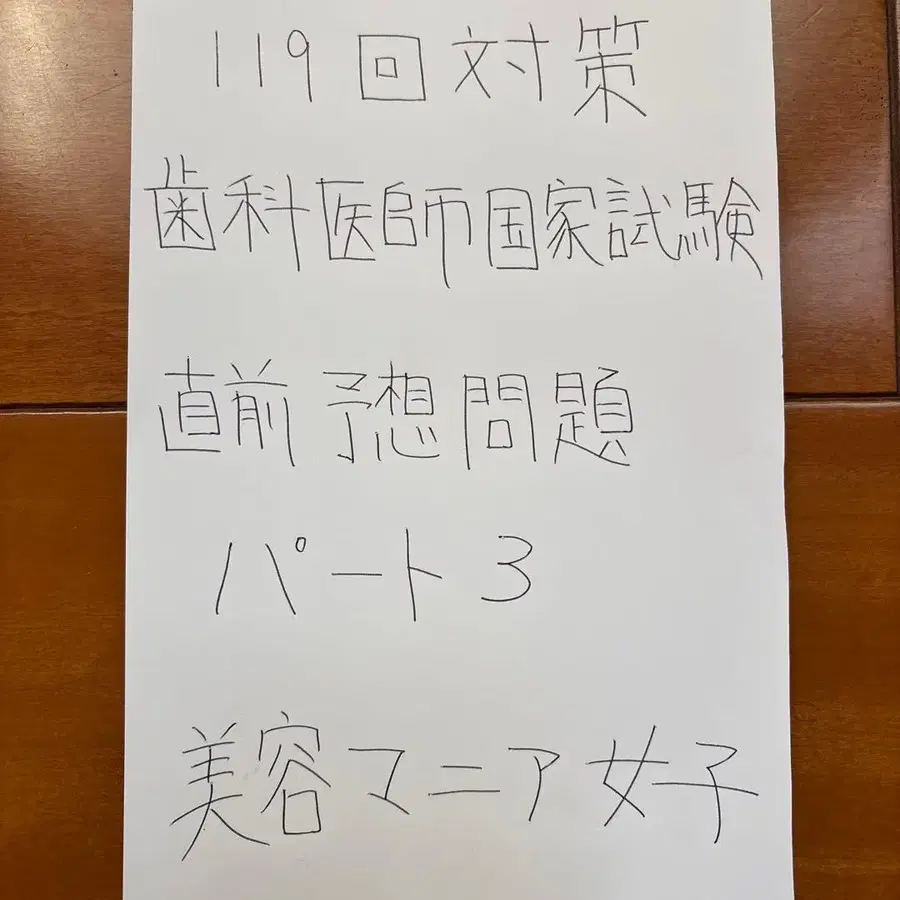 119回対策
歯科医師国家試験
直前予想問題
パート3
美容マニア女子